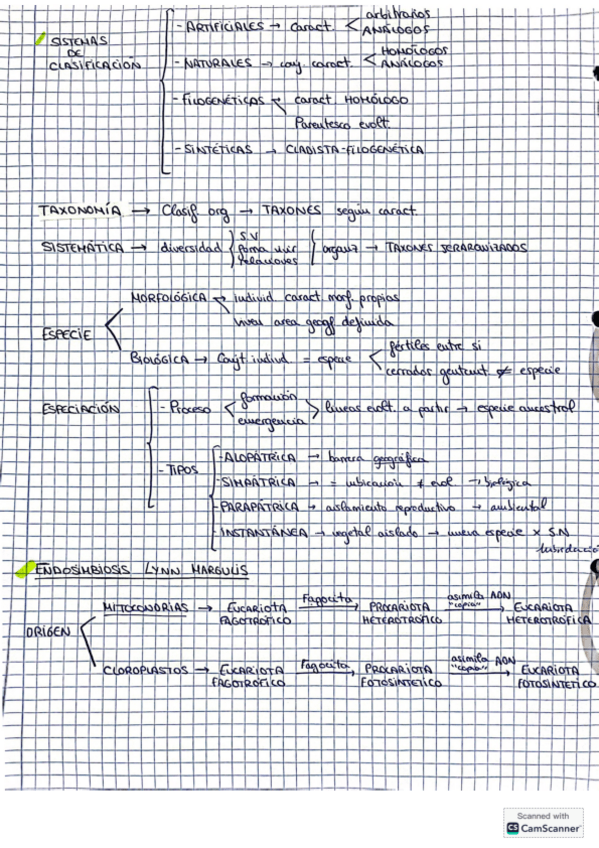 - ARTIFICIALES → caract. < arbitrarios
ANÁLOGOS
SISTEMAS
DE
CLASIFICACIÓN
- NATURALES → conj. caract. < HOMÓLOGOS
ANÁLOGOS
- FILOGENÉTICAS < caract HOMÓLOGO
Parentesco evolt.
- SINTÉTICAS → CLADISTA-FILOGENÉTICA
TAXONOMÍA → Clasif org → TAXONES según caract.
SISTEMÁTICA → diversidad } S.V
forma vivir
relaciones } organiz → TAXONES JERARQUIZADOS
ESPECIE
MORFOLÓGICA → individ. caract. morf. propias
viven area geogf definida
BIOLÓGICA → Conjt individ. = especie < fértiles entre si
cerrados genétmt ≠ especie
ESPECIACIÓN
- Proceso < formación
emergencia > lineas evolt. a partir → especie ancestral
- TIPOS
- ALOPÁTRICA → barrera geográfica
- SIMPÁTRICA → = ubicación ≠ evol. → biológica
- PARAPÁTRICA → aislamiento reproductivo → ambiental
- INSTANTÁNEA → vegetal aislado → nueva especie x S.N
hibridación
ENDOSIMBIOSIS LYNN MARGULIS
ORIGEN
MITOCONDRIAS → EUCARIOTA FAGOTRÓFICO → Fagocita → PROCARIOTA HETEROTRÓFICO → asimila ADN "copia" → EUCARIOTA HETEROTRÓFICA
CLOROPLASTOS → EUCARIOTA FAGOTRÓFICO → Fagocita → PROCARIOTA FOTOSINTÉTICO → asimila ADN "copia" → EUCARIOTA FOTOSINTÉTICO
Scanned with
CS CamScanner